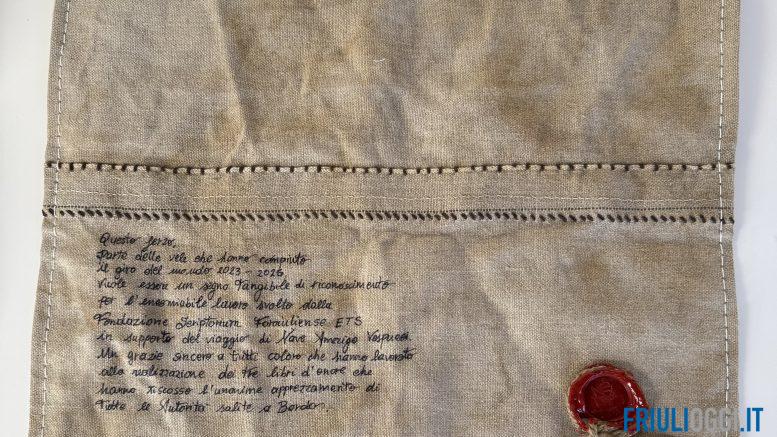 Questo ferzo,
Parte delle vele che hanno compiuto
il giro del mondo 2023 - 2026
Vuole essere un segno Tangibile di riconoscimento
Per l'encomiabile lavoro svolto dalla
Fondazione Scriptorium Foroiuliense ETS
in supporto del viaggio di Nave Amerigo Vespucci.
Un grazie sincero a tutti coloro che hanno lavorato
alla realizzazione dei tre libri d'onore che
hanno riscosso l'unanime apprezzamento di
Tutte le Autorità salite a Bordo.
FRIULIOGGI.IT